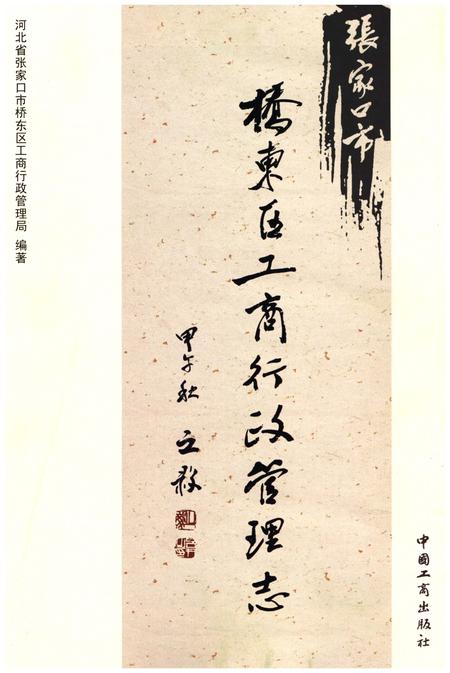 張家口市
橋東区工商行政管理志
甲午秋
河北省张家口市桥东区工商行政管理局 编著
中国工商出版社